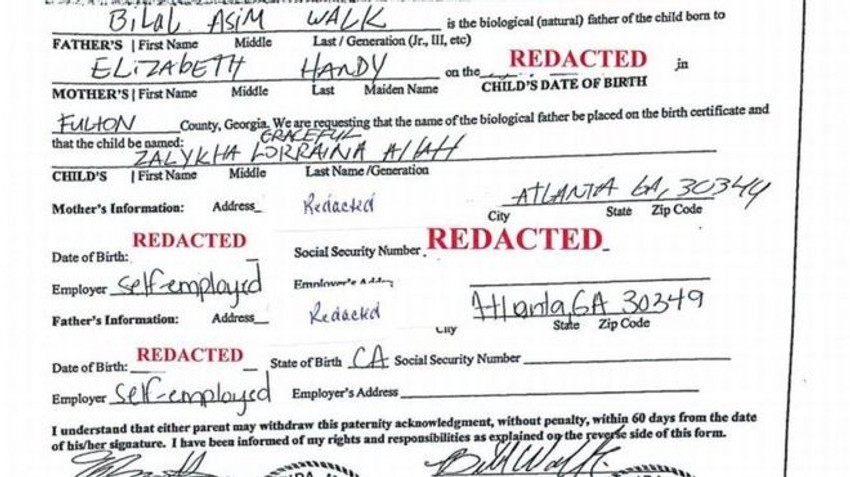 Bilal Asim WALK is the biological (natural) father of the child born to
FATHER'S | First Name Middle Last / Generation (Jr., III, etc)
ELIZABETH HANDY on the REDACTED in
MOTHER'S | First Name Middle Last Maiden Name CHILD'S DATE OF BIRTH
FULTON County, Georgia. We are requesting that the name of the biological father be placed on the birth certificate and
that the child be named: GRACEFUL
ZALYKHA LORRAINA Allah
CHILD'S | First Name Middle Last Name /Generation
Mother's Information: Address Redacted ATLANTA GA, 30344
City State Zip Code
Date of Birth: REDACTED Social Security Number REDACTED
Employer self-employed Employer's Addre
Father's Information: Address Redacted Atlanta, GA 30349
City State Zip Code
Date of Birth: REDACTED State of Birth CA Social Security Number
Employer self-employed Employer's Address
I understand that either parent may withdraw this paternity acknowledgment, without penalty, within 60 days from the date
of his/her signature. I have been informed of my rights and responsibilities as explained on the reverse side of this form.